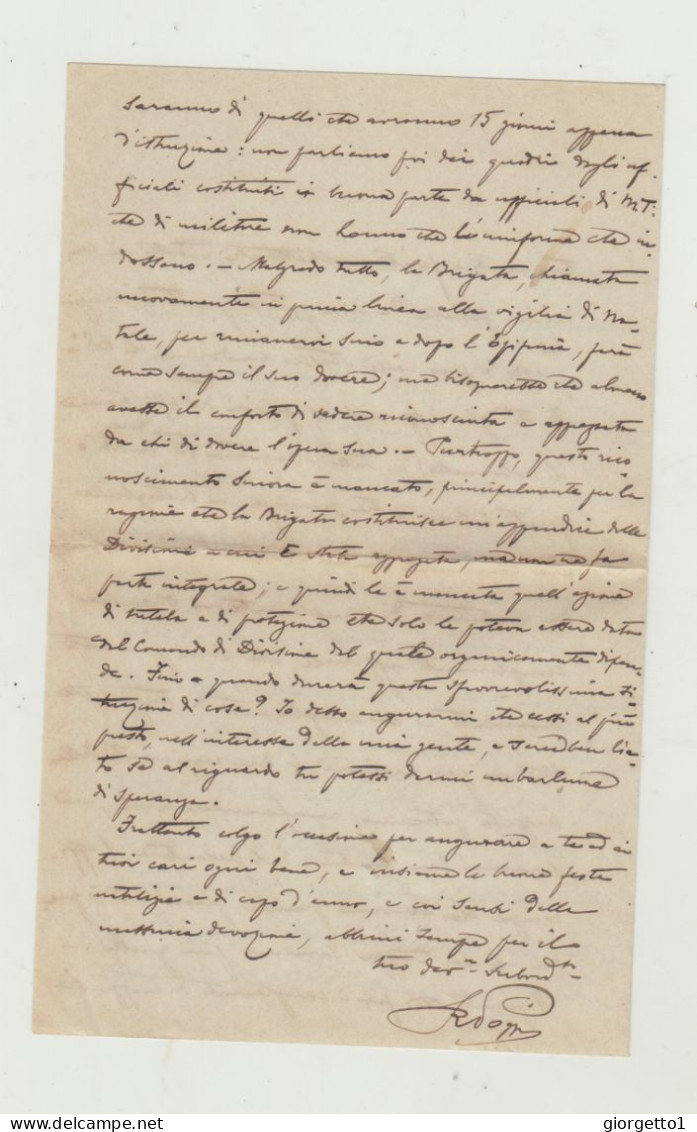 saranno di quelli che avranno 15 giorni appena
d'istruzione: non parliamo poi dei quadri degli uf-
ficiali costituiti in buona parte da ufficiali di M.T.
che di militare non hanno che l'uniforme che in-
dossano. — Malgrado tutto, la Brigata, chiamata
nuovamente in prima linea alla vigilia di Na-
tale, per rimanervi sino a dopo l'Epifania, farà
come sempre il suo dovere; ma bisognerebbe che almeno
avesse il conforto di vedere riconosciuta e apprezzata
da chi di dovere l'opera sua. — Purtroppo, questo rico-
noscimento sinora è mancato, principalmente per la
ragione che la Brigata costituisce un'appendice delle
Divisioni a cui è stata aggregata, ma non ne fa
parte integrale; e quindi le è mancata quell'azione
di tutela e di protezione che solo le poteva essere data
dal Comando di Divisione dal quale organicamente dipen-
de. Fino a quando durerà questa sfavorevolissima si-
tuazione di cose? Io debbo augurarmi che cessi al più
presto, nell'interesse della mia gente, e sarei ben lie-
to se al riguardo tu potessi darmi un barlume
di speranza.
Frattanto colgo l'occasione per augurare a te ed ai
tuoi cari ogni bene, e insieme le buone feste
natalizie e di capo d'anno, e coi sensi della
massima devozione, abbimi sempre per il
tuo dev.mo Subord.to
giorgetto1